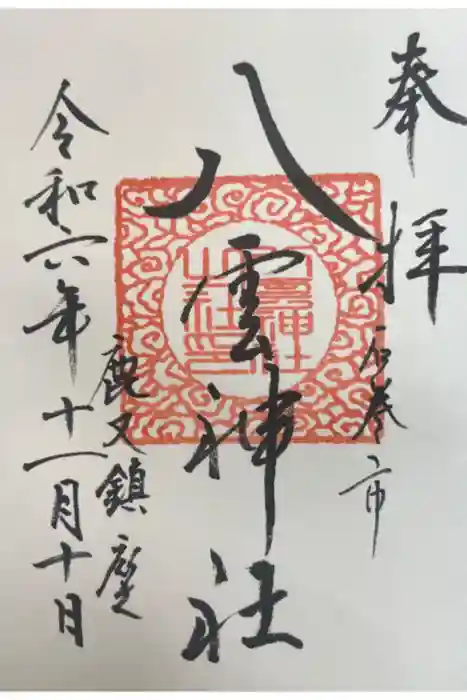 奉拝
石巻市
八雲神社
八雲神社之印
鹿又鎮座
令和六年十一月十日